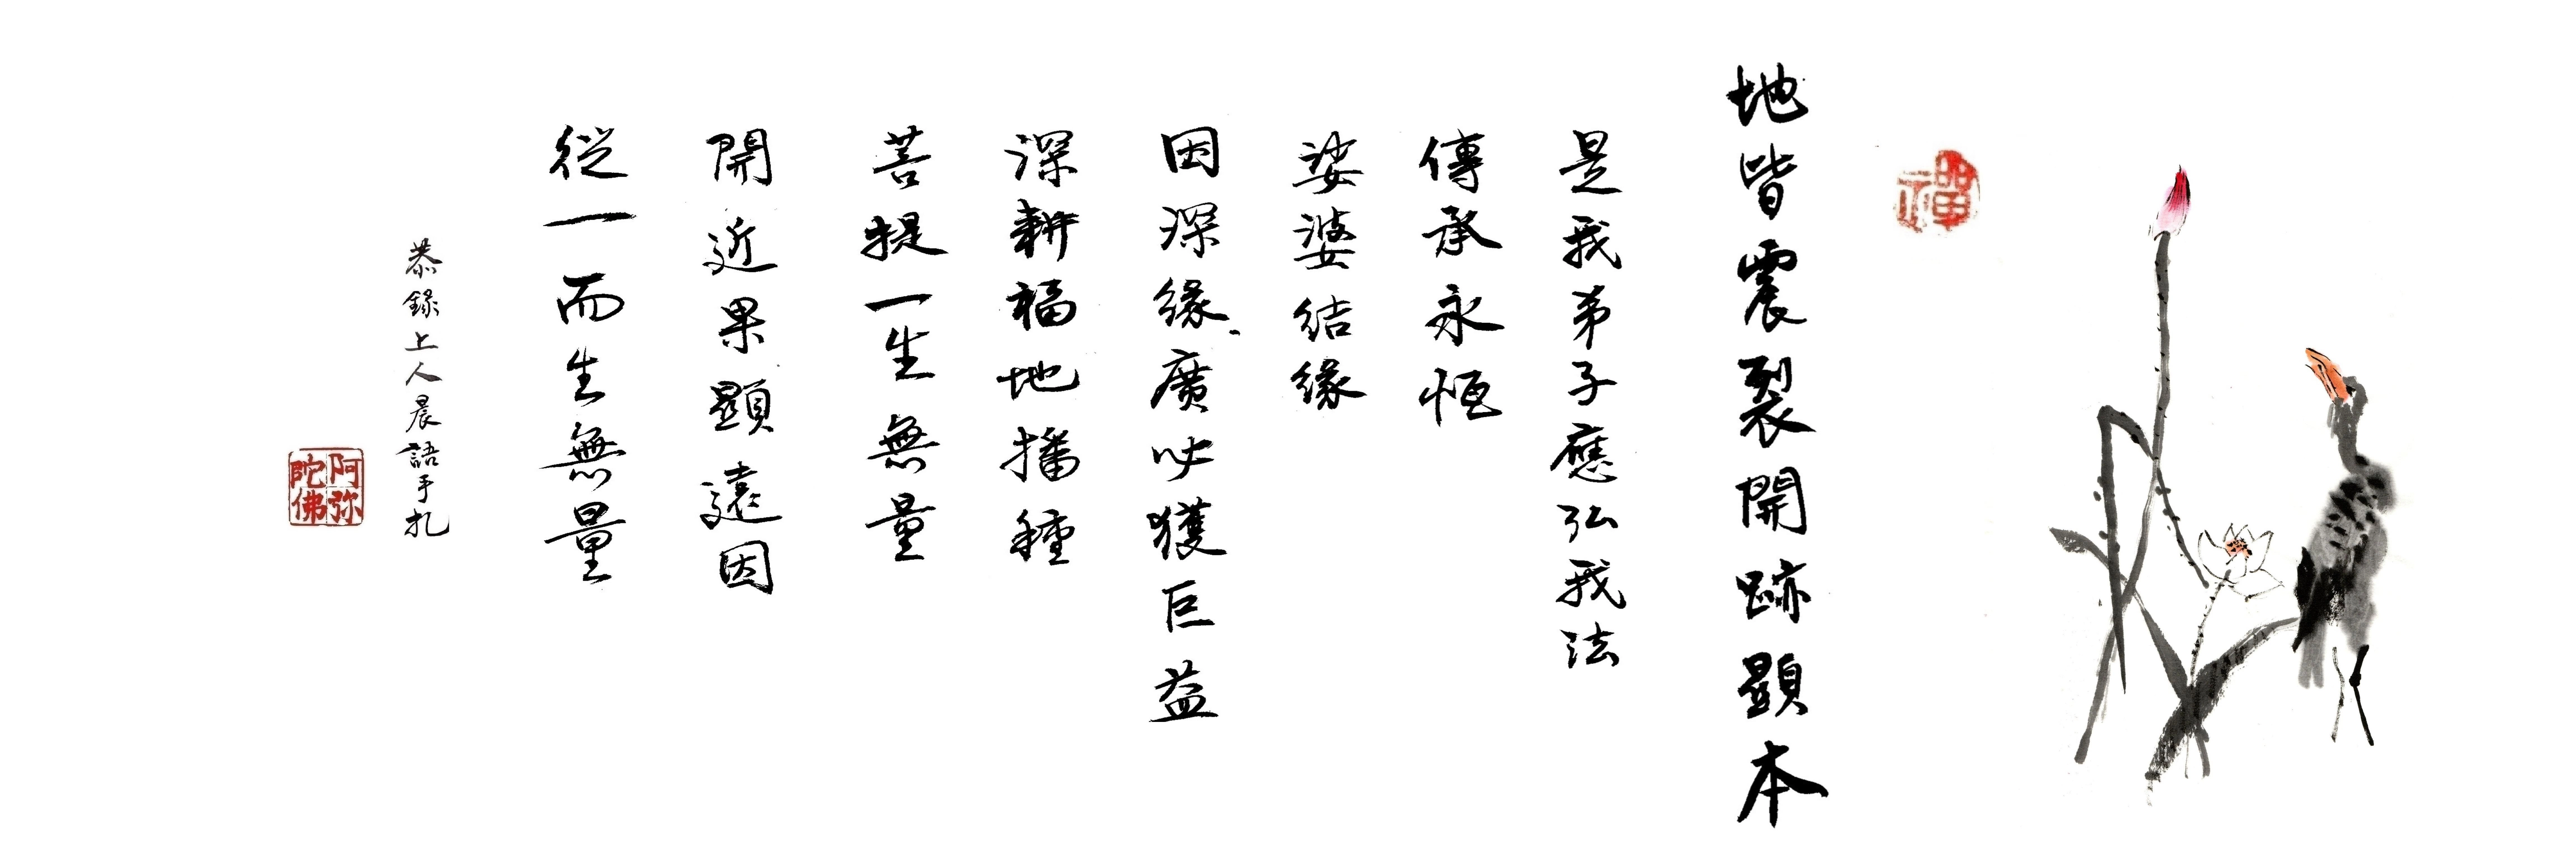 禪
地皆震裂開跡顯本
是我弟子應弘我法
傳承永恒
娑婆结緣
因深緣廣必獲巨益
深耕福地播種
菩提一生無量
開近果顯遠因
從一而生無量
恭錄上人晨語手札
阿弥陀佛